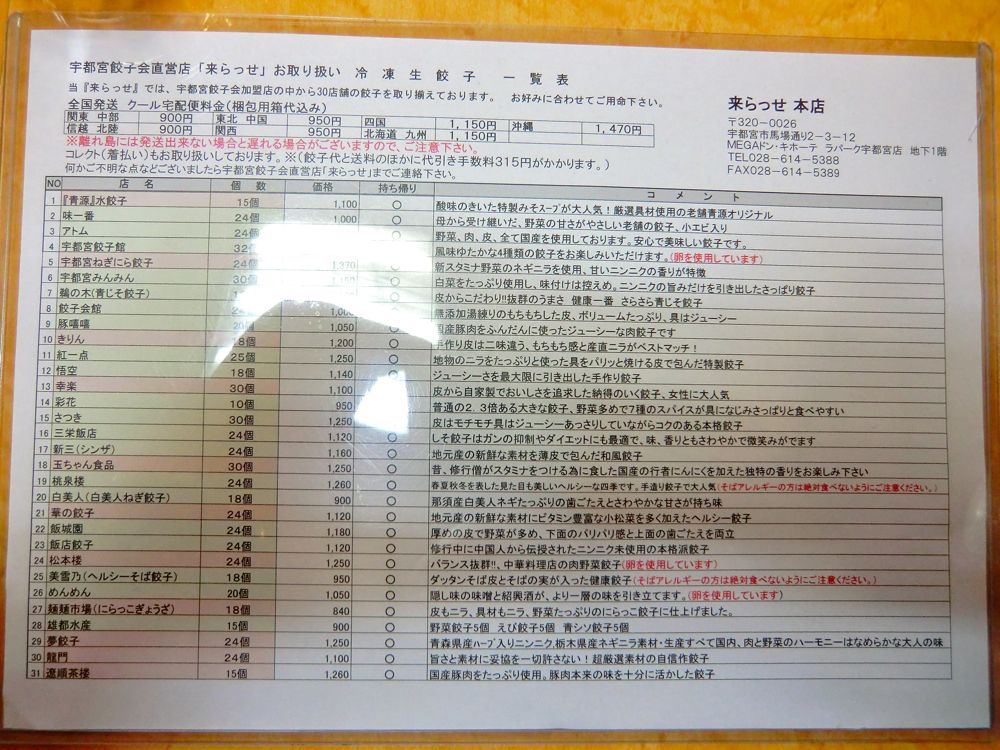 宇都宮餃子会直営店「来らっせ」お取り扱い 冷凍生餃子 一覧表
当『来らっせ』では、宇都宮餃子会加盟店の中から30店舗の餃子を取り揃えております。 お好みに合わせてご用命下さい。
全国発送 クール宅配便料金(梱包用箱代込み)
関東 中部 900円 東北 中国 950円 四国 1,150円 沖縄 1,470円
信越 北陸 900円 関西 950円 北海道 九州 1,150円
※離れ島には発送出来ない場合と遅れる場合がございますので、ご注意下さい。
コレクト(着払い)もお取り扱いしております。※(餃子代と送料のほかに代引き手数料315円がかかります。)
何かご不明な点などございましたら宇都宮餃子会直営店「来らっせ」までご連絡下さい。
来らっせ 本店
〒320-0026
宇都宮市馬場通り2-3-12
MEGAドン・キホーテ ラパーク宇都宮店 地下1階
TEL028-614-5388
FAX028-614-5389
NO 店名 個数 価格 持ち帰り コメント
1 『青源』水餃子 15個 1,100 ○ 酸味のきいた特製みそスープが大人気!厳選具材使用の老舗青源オリジナル
2 味一番 24個 1,000 ○ 母から受け継いだ、野菜の甘さがやさしい老舗の餃子、小エビ入り
3 アトム 24個 ○ 野菜、肉、皮、全て国産を使用しております。安心で美味しい餃子です。
4 宇都宮餃子館 32個 風味ゆたかな4種類の餃子をお楽しみいただけます。(卵を使用しています)
5 宇都宮ねぎにら餃子 24個 1,370 新スタミナ野菜のネギニラを使用、甘いニンニクの香りが特徴
6 宇都宮みんみん 30個 白菜をたっぷり使用し、味付けは控えめ。ニンニクの旨みだけを引き出したさっぱり餃子
7 鵜の木(青じそ餃子) 皮からこだわり!!抜群のうまさ 健康一番 さらさら青じそ餃子
8 餃子会館 無添加湯練りのもちもちした皮、ボリュームたっぷり、具はジューシー
9 豚嘻嘻 20個 1,050 ○ 国産豚肉をふんだんに使ったジューシーな肉餃子です
10 きりん 18個 1,200 ○ 手作り皮は二味違う、もちもち感と産直ニラがベストマッチ!
11 紅一点 25個 1,250 ○ 地物のニラをたっぷりと使った具をパリッと焼ける皮で包んだ特製餃子
12 悟空 18個 1,140 ○ ジューシーさを最大限に引き出した手作り餃子
13 幸楽 30個 1,100 皮から自家製でおいしさを追求した納得のいく餃子、女性に大人気
14 彩花 10個 950 普通の2.3倍ある大きな餃子、野菜多めで7種のスパイスが具になじみさっぱりと食べやすい
15 さつき 30個 1,250 皮はモチモチ具はジューシーあっさりしていながらコクのある本格餃子
16 三栄飯店 24個 1,120 ○ しそ餃子はガンの抑制やダイエットにも最適で、味、香りともさわやかで微笑みがでます
17 新三(シンザ) 24個 1,160 ○ 地元産の新鮮な素材を薄皮で包んだ和風餃子
18 玉ちゃん食品 30個 1,250 ○ 昔、修行僧がスタミナをつける為に食した国産の行者にんにくを加えた独特の香りをお楽しみ下さい
19 桃泉楼 24個 1,260 ○ 春夏秋冬を表した見た目も美しいヘルシーな四季です。手造り餃子で大人気(そばアレルギーの方は絶対食べないようにご注意ください。)
20 白美人(白美人ねぎ餃子) 18個 900 ○ 那須産白美人ネギたっぷりの歯ごたえとさわやかな甘さが持ち味
21 華の餃子 24個 1,120 ○ 地元産の新鮮な素材にビタミン豊富な小松菜を多く加えたヘルシー餃子
22 飯城園 24個 1,180 ○ 厚めの皮で野菜が多め、下面のパリパリ感と上面の歯ごたえを両立
23 飯店餃子 24個 1,120 ○ 修行中に中国人から伝授されたニンニク未使用の本格派餃子
24 松本楼 24個 1,250 ○ バランス抜群!!、中華料理店の肉野菜餃子(卵を使用しています)
25 美雪乃(ヘルシーそば餃子) 18個 950 ○ ダッタンそば皮とそばの実が入った健康餃子(そばアレルギーの方は絶対食べないようにご注意ください。)
26 めんめん 20個 1,050 ○ 隠し味の味噌と紹興酒が、より一層の味を引き立てます。(卵を使用しています)
27 麺麺市場(にらっこぎょうざ) 18個 840 ○ 皮もニラ、具材もニラ、野菜たっぷりのにらっこ餃子に仕上げました。
28 雄都水産 15個 900 ○ 野菜餃子5個 えび餃子5個 青シソ餃子5個
29 夢餃子 24個 1,250 ○ 青森県産ハーブ入りニンニク,栃木県産ネギニラ素材・生産すべて国内、肉と野菜のハーモニーはなめらかな大人の味
30 龍門 24個 1,100 ○ 旨さと素材に妥協を一切許さない!超厳選素材の自信作餃子
31 遼順茶楼 15個 1,260 ○ 国産豚肉をたっぷり使用。豚肉本来の味を十分に活かした餃子